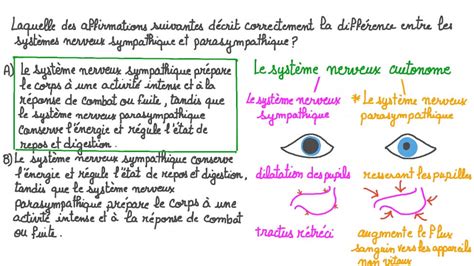 Laquelle des affirmations suivantes décrit correctement la différence entre les
systèmes nerveux sympathique et parasympathique ?
A) Le système nerveux sympathique prépare
le corps à une activité intense et à la
réponse de combat ou fuite, tandis que
le système nerveux parasympathique
conserve l'énergie et régule l'état de
repos et digestion.
B) Le système nerveux sympathique conserve
l'énergie et régule l'état de repos et digestion,
tandis que le système nerveux
parasympathique prépare le corps à une
activité intense et à la réponse de combat
ou fuite.
Le système nerveux autonome
Le système nerveux
sympathique
* Le système nerveux
parasympathique
dilatation des pupils
resserant les pupilles
tractus rétréci
augmente le flux
sanguin vers les appareils
non vitaux